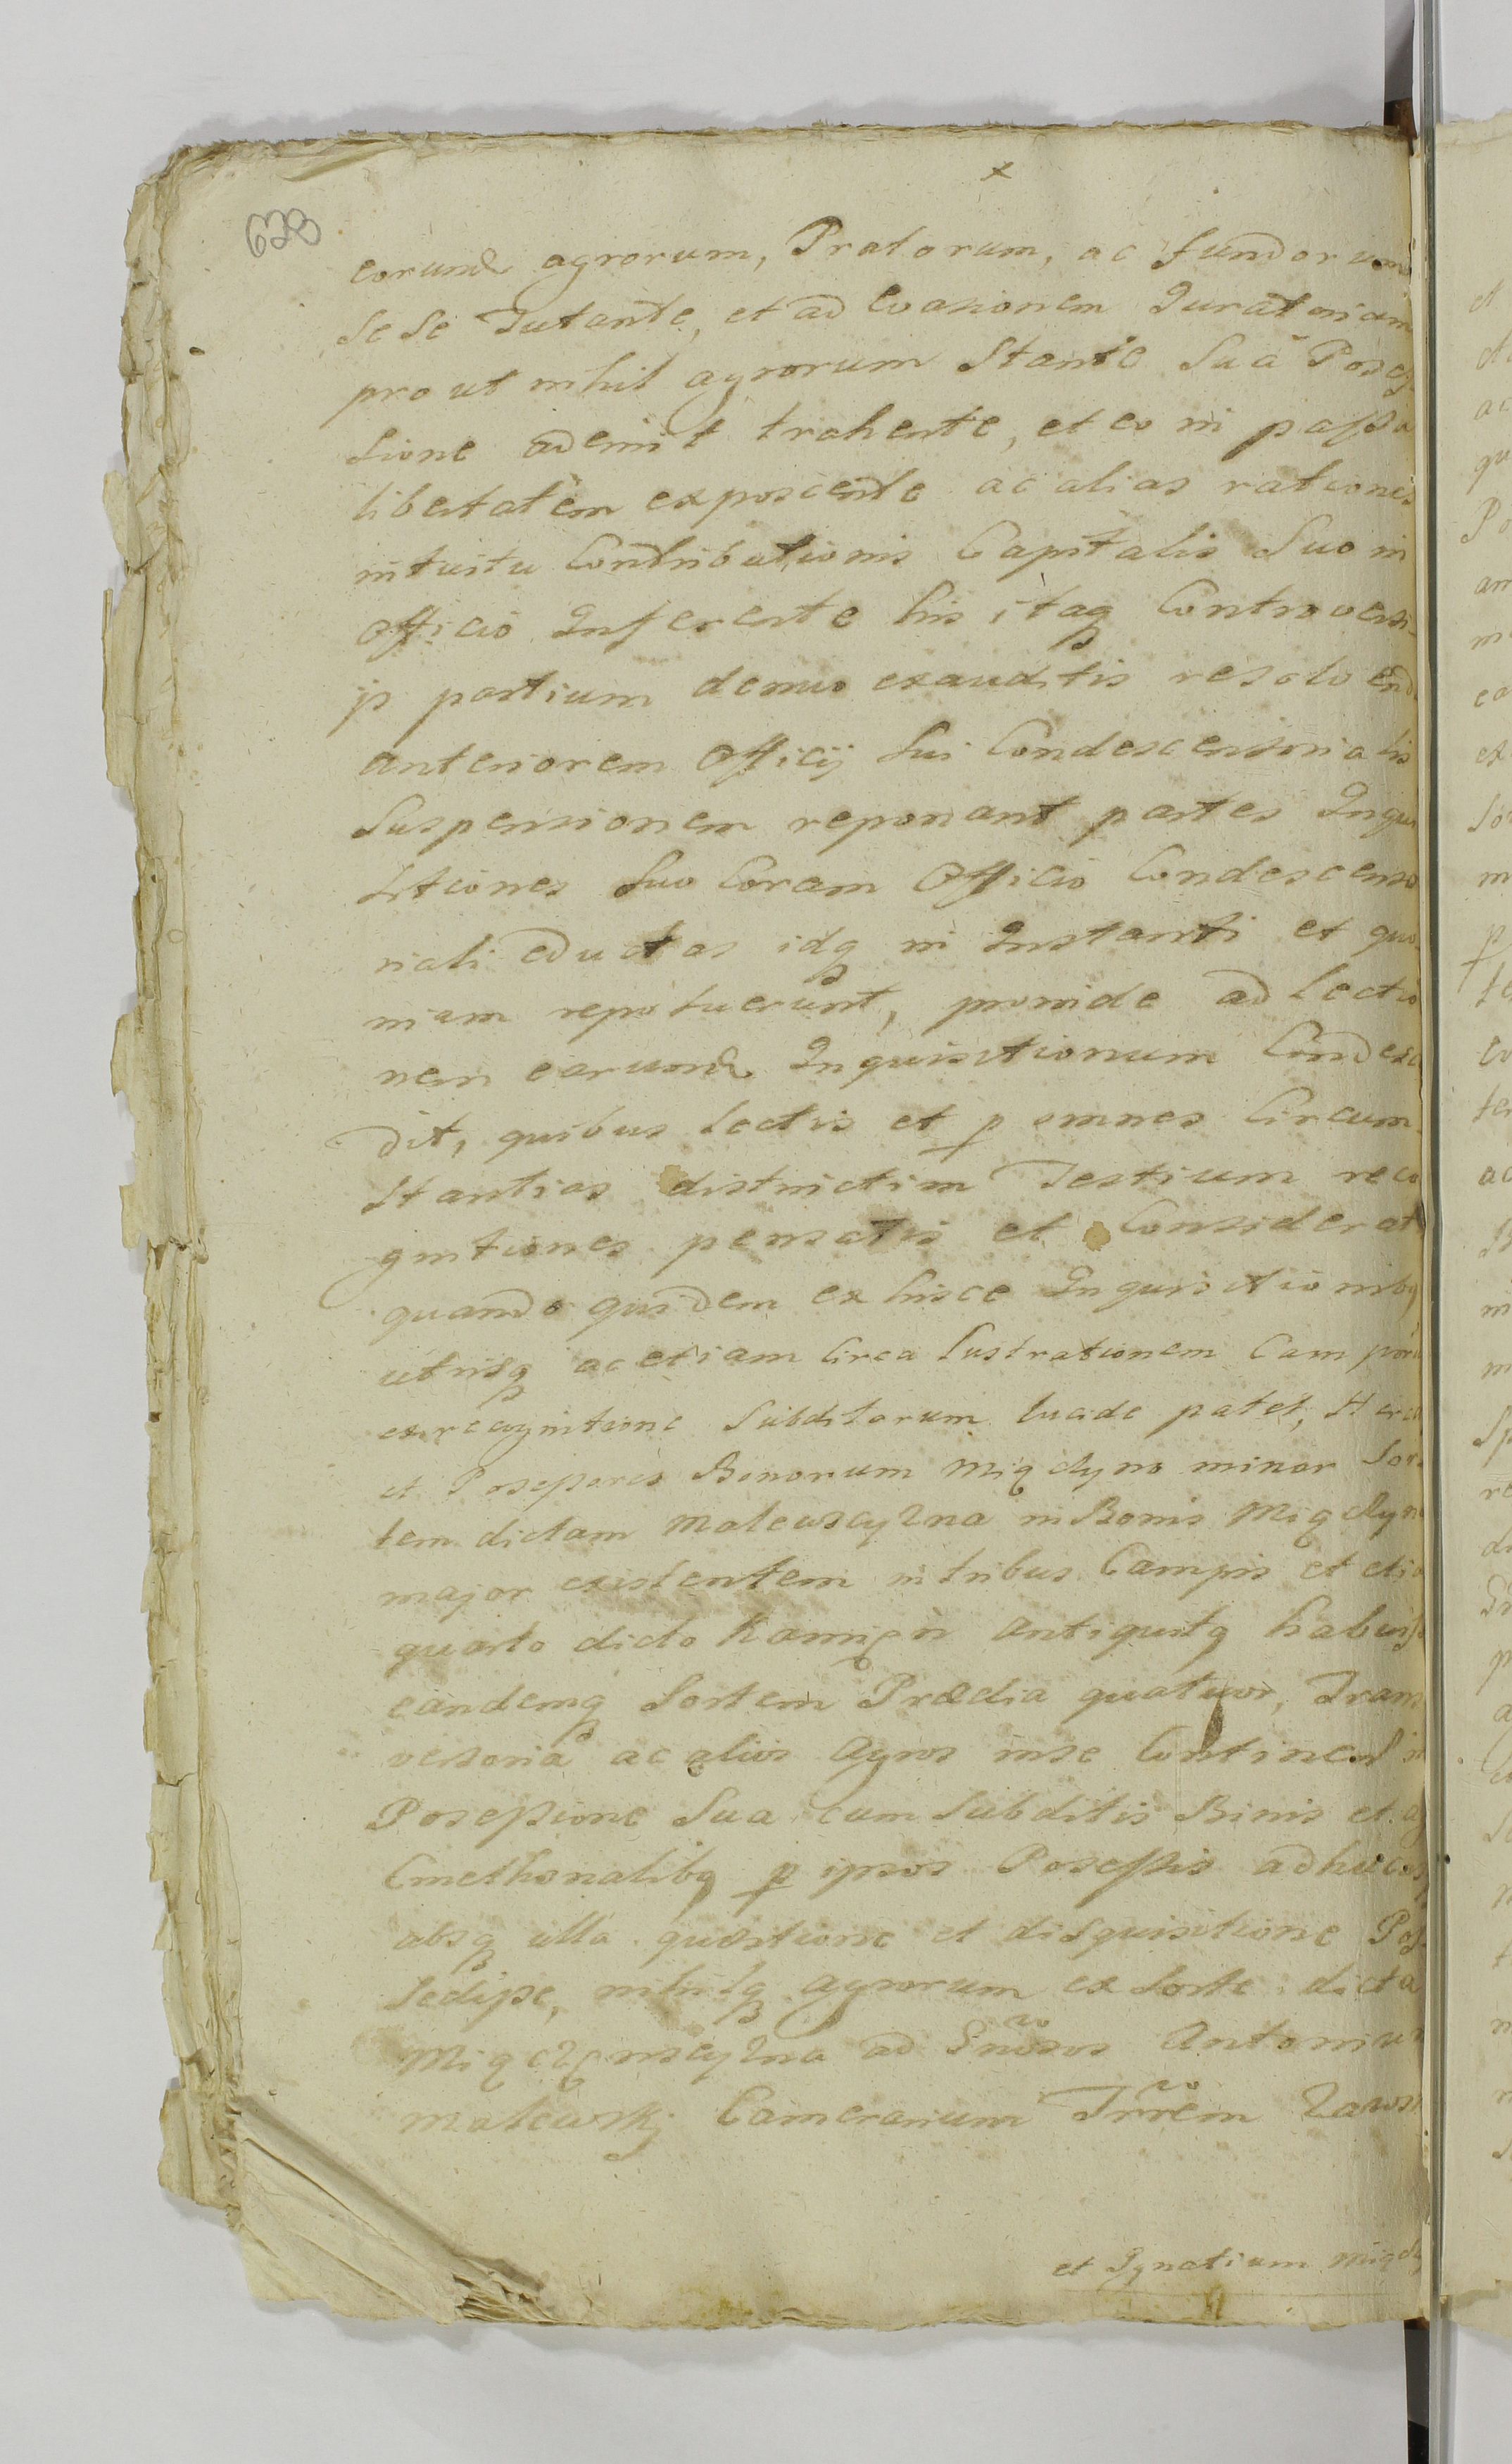 x
628
eorund agrorum, Pratorum, ac fundorum
Se Se Tutante, et ad Evasionem Juratoriam
pro ut nihil agrorum Stante Suâ Posses
Sione ademit trahente, et eo in passu
libertatem exposcente ac alias rationes
intuitu Contributionis Capitalis Suo in
Officio Inferente his itaq Controversi-
js partium denuo exauditis resolvend
anteriorem Officij Sui Condescensorialis
Suspensionem reponant partes Inqui
sitiones Suo Coram Officio Condescenso
riali eductas idq in Instanti et quo
niam reposuerunt, proinde ad lectio
nem earund Inquisitionum Condesc
dit, quibus lectis et p omnes Circum
Stantias districtim Testium reco
gnitiones pensatis et Considerat
quando quidem ex hisce Inquisitionibq
utrisq ac etiam circa lustrationem Camporu
ex recognitione Subditorum lucide patet,
et Possessores Bonorum Miączyno minor Sor
tem dictam Mateuszczyzna in Bonis Miączyn
major existentem in tribus Campis et eti
quarto dicto Kamięn antiquitq habuisse
eandemq Sortem Prædia quatuor, Trans
versoria ac alios Agros in se Continen in
Possessione Sua cum Subditis Binis et ag
Cmethonalibq p ipsos Possessis adhuc
absq ulla quæstione et disquisitione Pos
Sedisse, nihilq agrorum ex Sorte dicta
Miączęnsczyzna ad Gnosos Antonium
Mateuski Camerarium Trrem Zawsk
et Ignatium Miącz